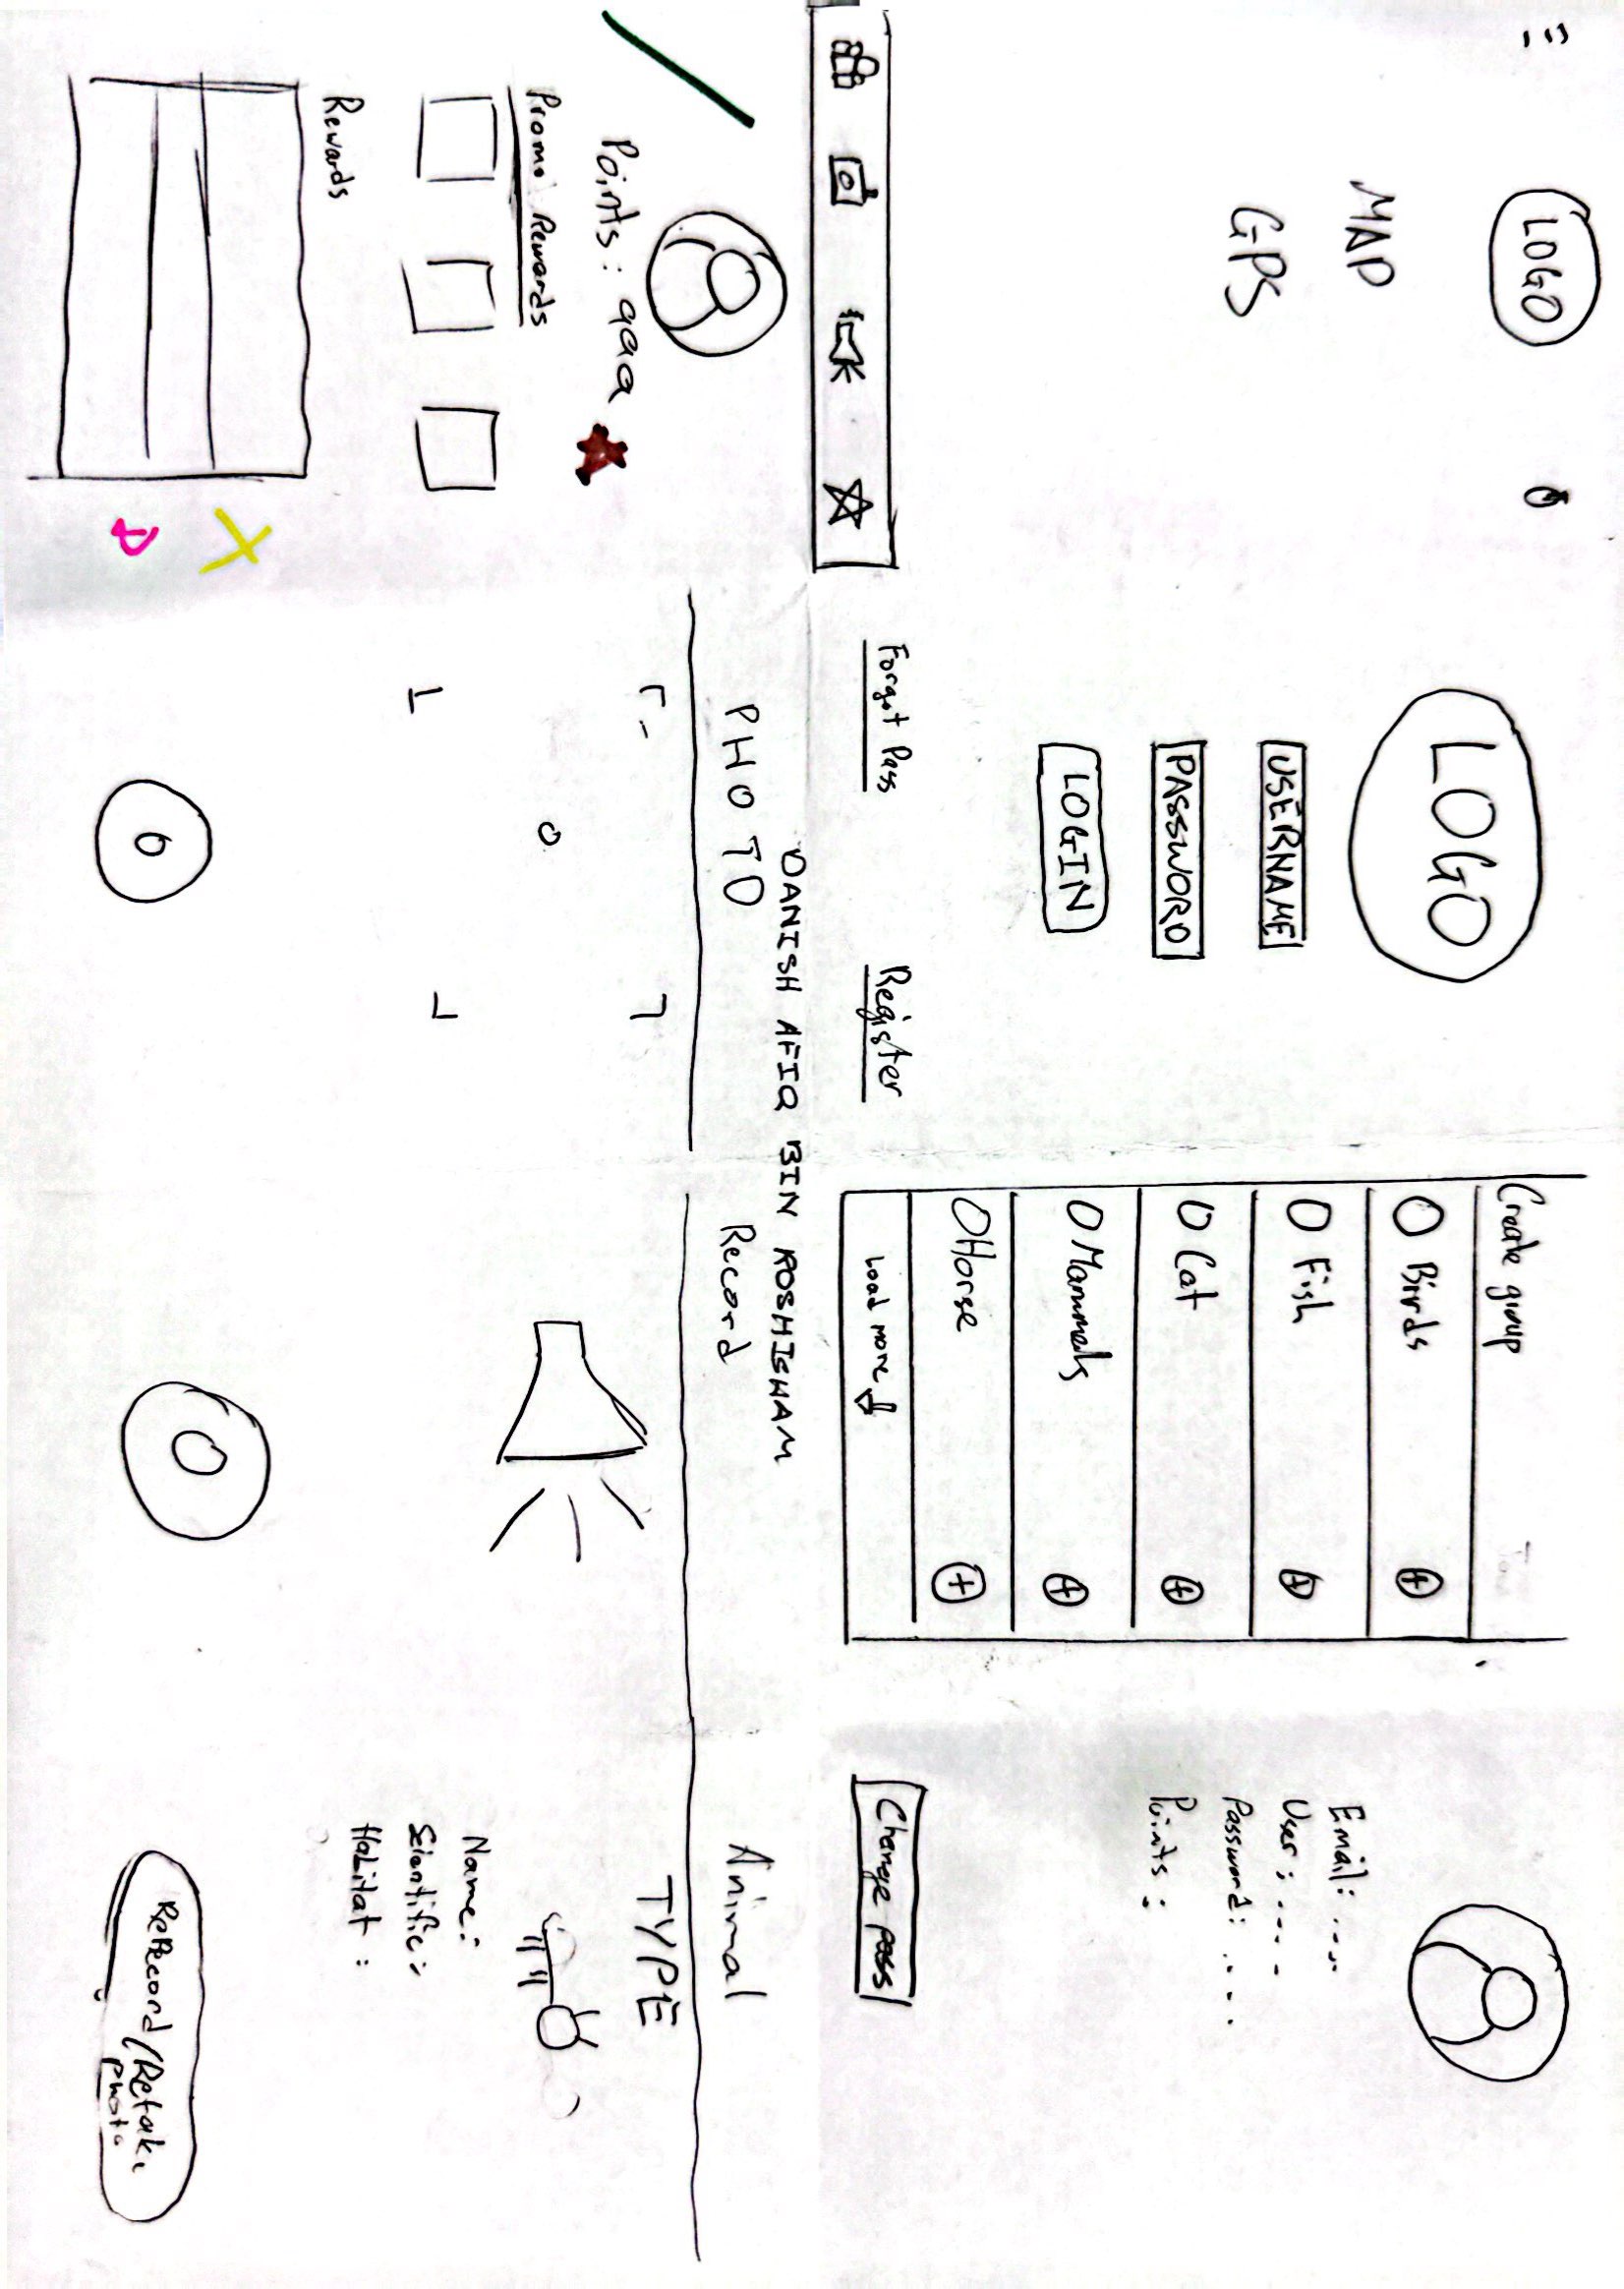 LOGO
MAP
GPS
LOGO
USERNAME
PASSWORD
LOGIN
Forgot Pass
Register
Create group
Birds
Fish
Cat
Mammals
Horse
Load more
Email: ....
User: ....
Password: ....
Points:
Change pass
DANISH AFIQ BIN ROSHISHAM
Points: 999
Promo Rewards
Rewards
PHOTO
Record
Animal
TYPE
Name:
Scientific:
Habitat:
ReRecord/Retake
photo